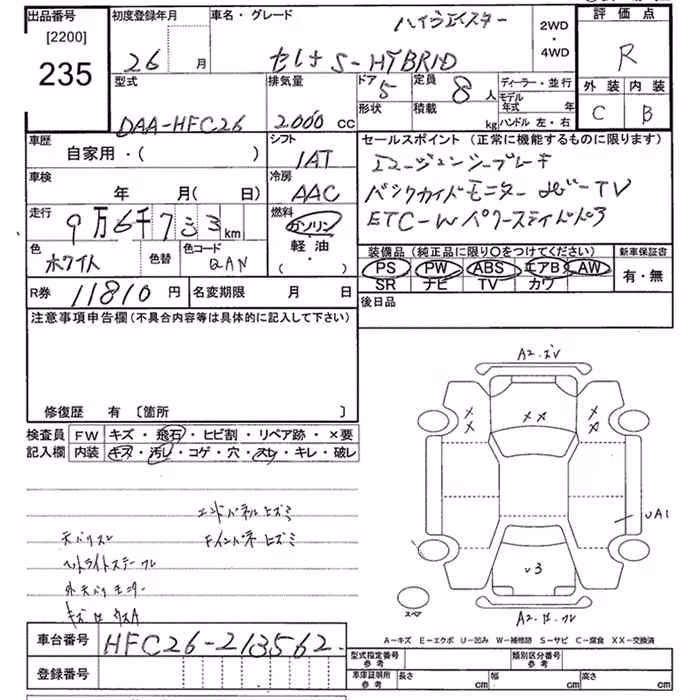 出品番号
[2200]
235
初度登録年月
26 月
車名・グレード
ハイウェイスター
セレナ S-HYBRID
2WD
・
4WD
評価点
R
外装 内装
C B
型式
DAA-HFC26
排気量
2000 cc
ドア 5
形状
定員 8 人
積載 kg
ディーラー・並行
モデル年式 年
ハンドル 左・右
車歴
自家用・( )
シフト
IAT
車検
年 月( 日)
冷房
AAC
走行
9万6千733km
燃料
ガソリン
軽油
( ・ )
色
ホワイト
色替
色コード
QAN
R券 11810 円
名変期限 月 日
セールスポイント (正常に機能するものに限ります)
エマージェンシーブレーキ
バックカメラモニター ナビ-TV
ETC-W パワースライドドア
装備品 (純正品に限り〇をつけてください)
PS PW ABS エアB AW
SR ナビ TV カワ
新車保証書
有・無
後日品
注意事項申告欄 (不具合内容等は具体的に記入して下さい)
修復歴 有 〔箇所 〕
検査員
記入欄
FW キズ・飛石・ヒビ割・リペア跡・×要
内装 キズ・汚レ・コゲ・穴・スレ・キレ・破レ
エンドパネルヒズミ
Fインパネ ヒズミ
天バリスレ
ヘッドライトスチール
A2.
××
××
××
UA1
v3
A2.
スペア
A-キズ E-エクボ U-凹み W-補修跡 S-サビ C-腐食 XX-交換済
車台番号 HFC26-213562
登録番号
型式指定番号
参考
類別区分番号
参考
車庫証明所
参考
長さ cm
幅 cm
高さ cm